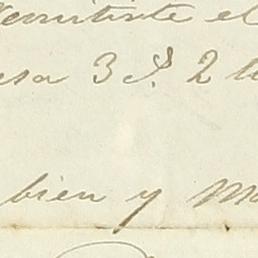 remitirte el
esa 3 P. 2
bien y Ma